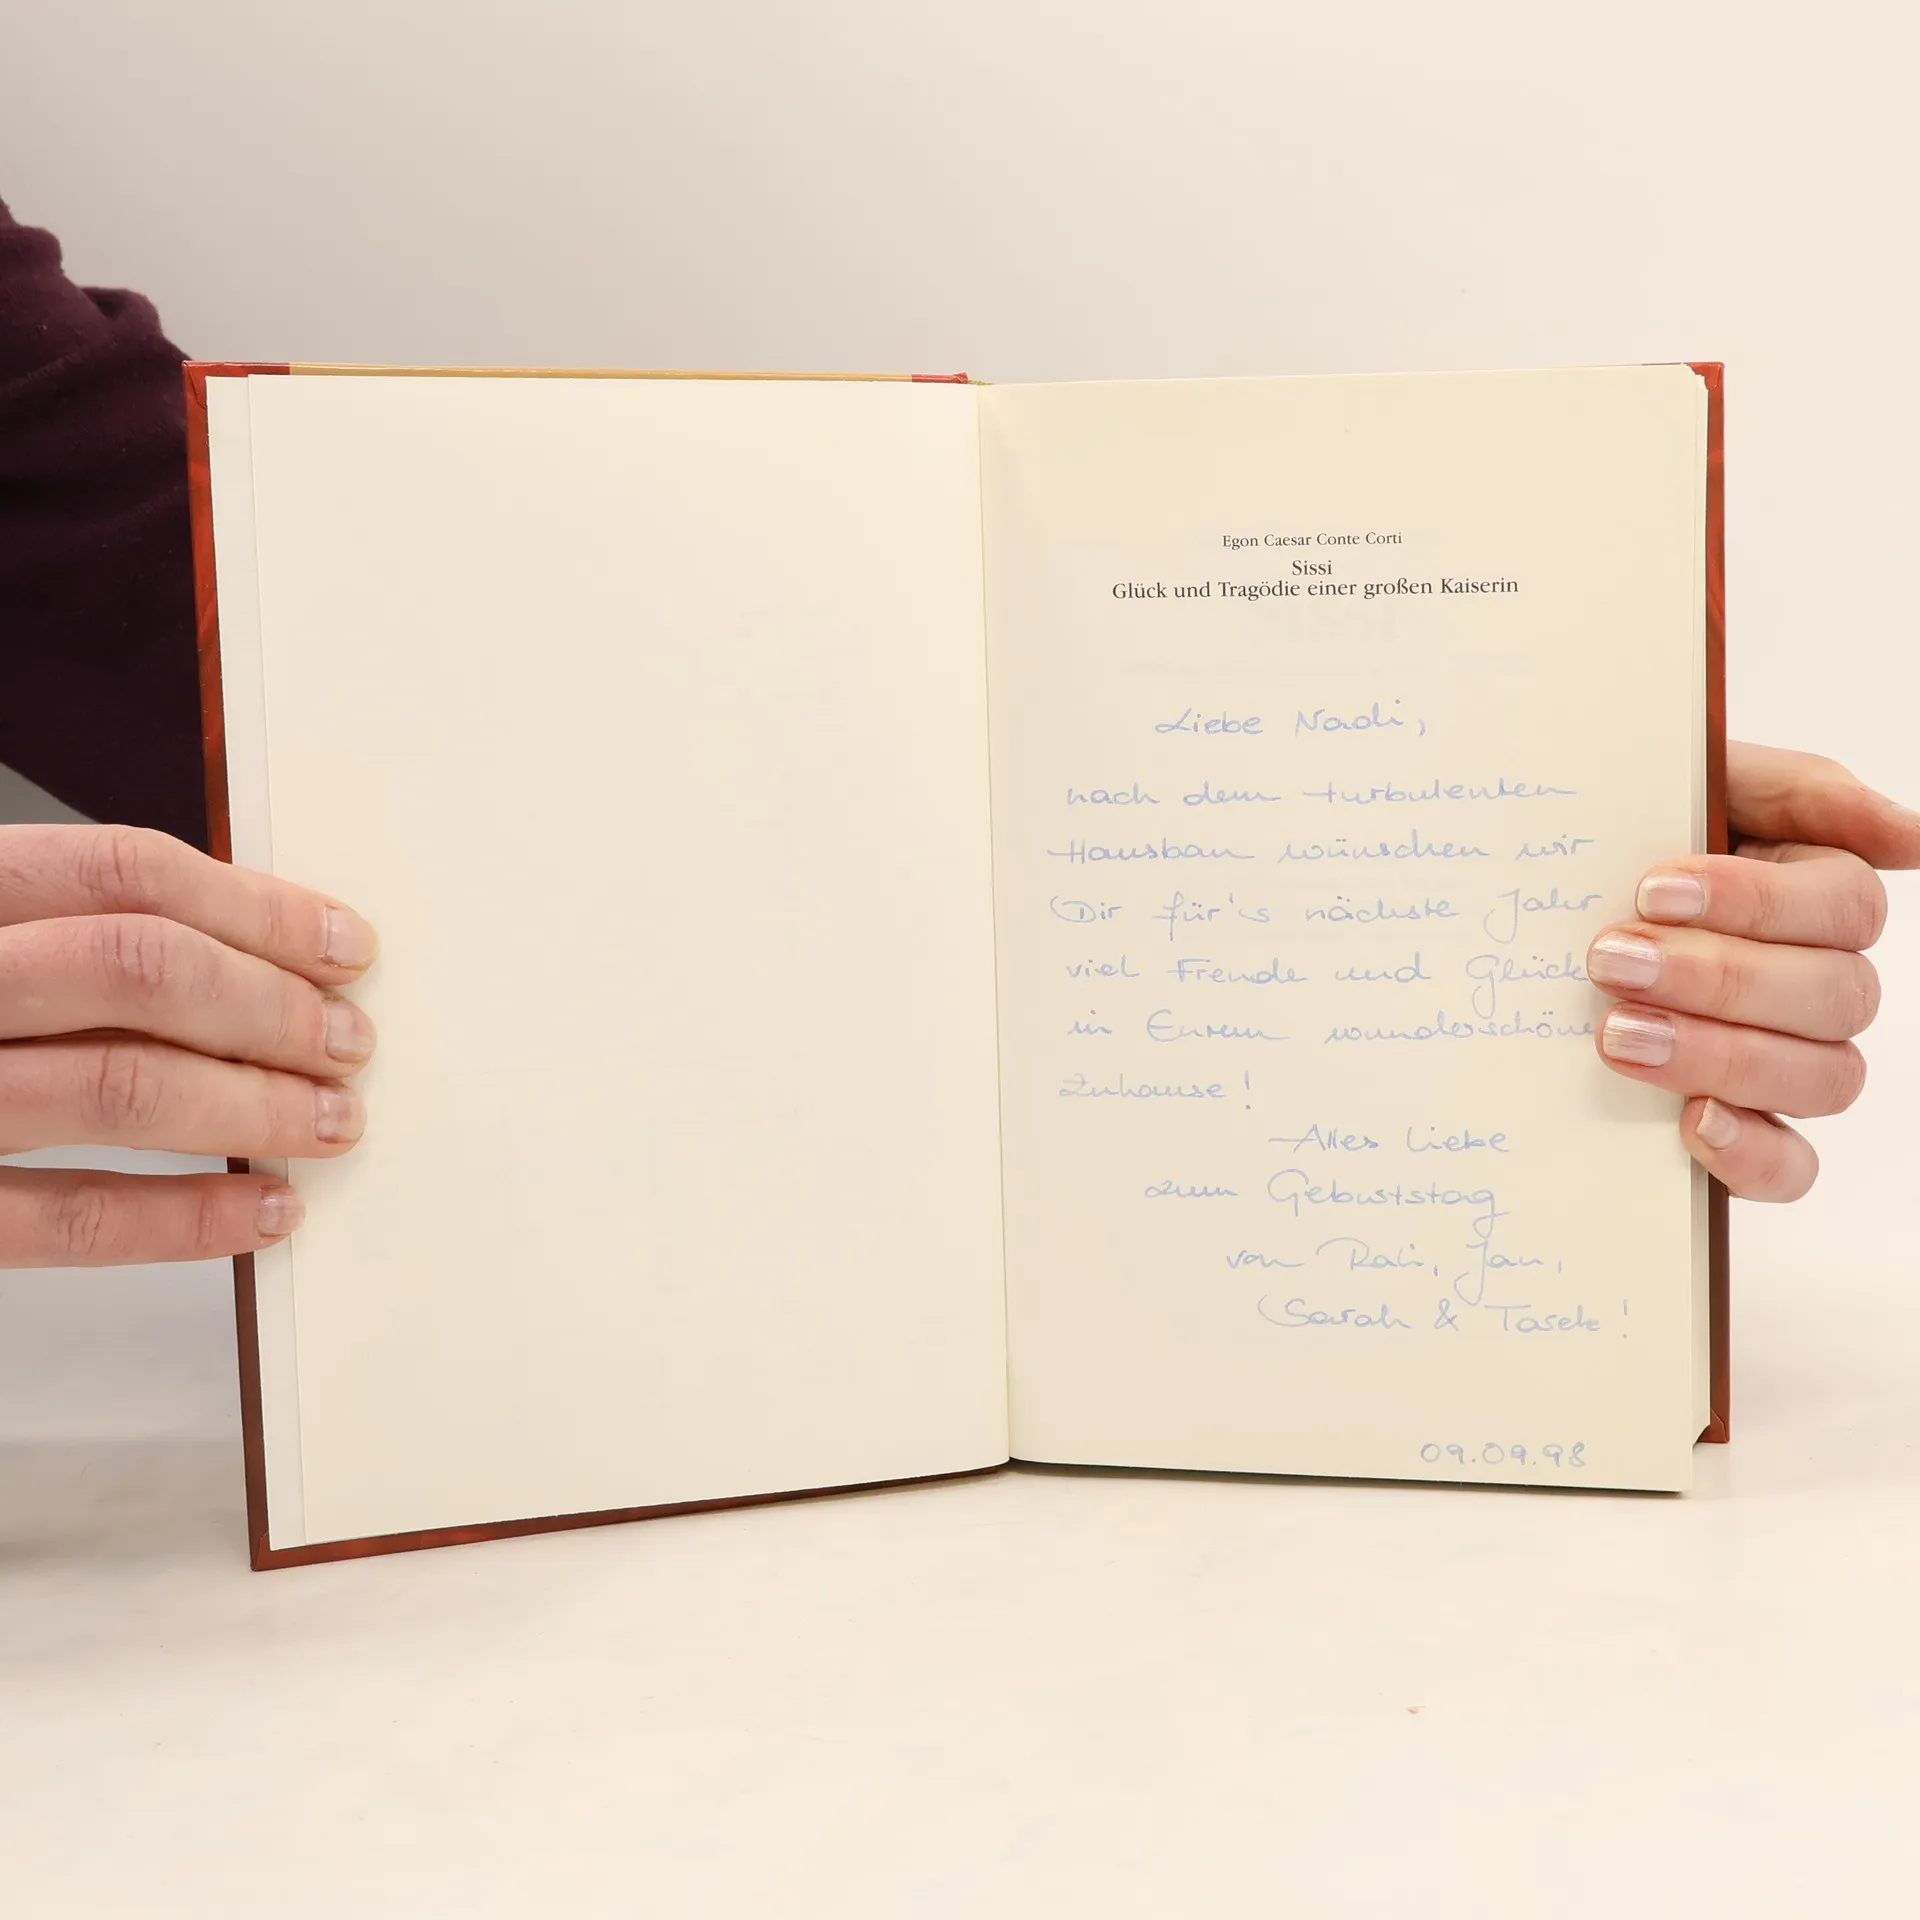 Egon Caesar Conte Corti
Sissi
Glück und Tragödie einer großen Kaiserin
Liebe Nadi,
nach dem turbulenten
Hausbau wünschen wir
Dir für's nächste Jahr
viel Freude und Glück
in Eurem wunderschöne
Zuhause!
Alles Liebe
zum Geburtstag
von Rali, Jan,
Sarah & Tarek!
09.09.98